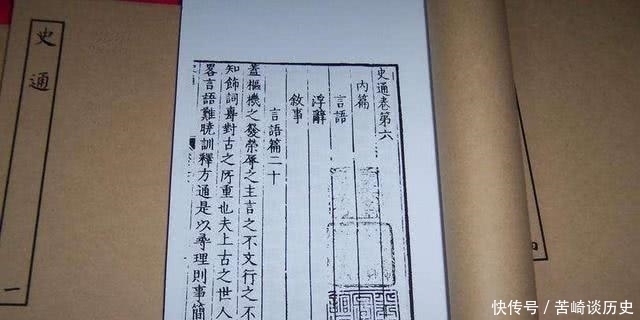 史通卷第六
内篇
言語
浮辭
敘事
言語篇二十
蓋樞機之發榮辱之主言之不文行之不
知飾詞專對古之所重也夫上古之世人
畧言語難曉訓釋方通是以尋理則事簡
史通
一
快传号 / 苦崎谈历史